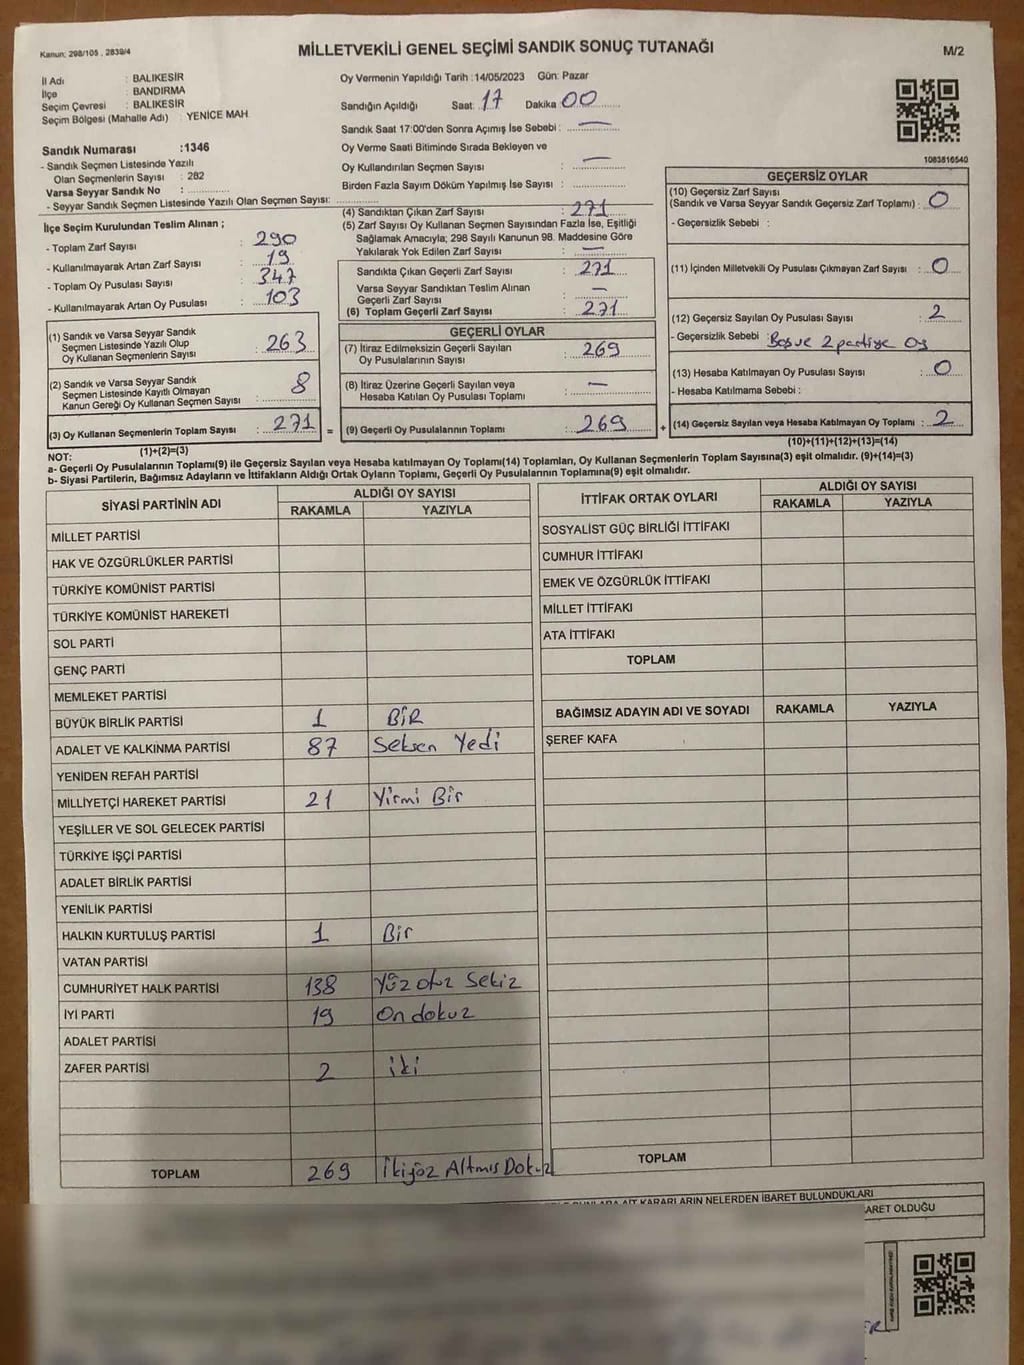 Kanun: 298/105 , 2839/4
MİLLETVEKİLİ GENEL SEÇİMİ SANDIK SONUÇ TUTANAĞI
M/2
İl Adı : BALIKESİR
İlçe : BANDIRMA
Seçim Çevresi : BALIKESİR
Seçim Bölgesi (Mahalle Adı) : YENİCE MAH
Sandık Numarası :1346
- Sandık Seçmen Listesinde Yazılı
Olan Seçmenlerin Sayısı : 282
Varsa Seyyar Sandık No :
- Seyyar Sandık Seçmen Listesinde Yazılı Olan Seçmen Sayısı:
Oy Vermenin Yapıldığı Tarih :14/05/2023 Gün: Pazar
Sandığın Açıldığı Saat: 17 Dakika 00
Sandık Saat 17:00'den Sonra Açımış İse Sebebi : —
Oy Verme Saati Bitiminde Sırada Bekleyen ve
Oy Kullandırılan Seçmen Sayısı : —
Birden Fazla Sayım Döküm Yapılmış İse Sayısı :
1083816540
İlçe Seçim Kurulundan Teslim Alınan ;
- Toplam Zarf Sayısı : 290
- Kullanılmayarak Artan Zarf Sayısı : 19
- Toplam Oy Pusulası Sayısı : 347
- Kullanılmayarak Artan Oy Pusulası : 103
(1) Sandık ve Varsa Seyyar Sandık
Seçmen Listesinde Yazılı Olup
Oy Kullanan Seçmenlerin Sayısı : 263
(2) Sandık ve Varsa Seyyar Sandık
Seçmen Listesinde Kayıtlı Olmayan
Kanun Gereği Oy Kullanan Seçmen Sayısı : 8
(3) Oy Kullanan Seçmenlerin Toplam Sayısı : 271 =
(1)+(2)=(3)
(4) Sandıktan Çıkan Zarf Sayısı : 271
(5) Zarf Sayısı Oy Kullanan Seçmen Sayısından Fazla İse, Eşitliği
Sağlamak Amacıyla; 298 Sayılı Kanunun 98. Maddesine Göre
Yakılarak Yok Edilen Zarf Sayısı : —
Sandıkta Çıkan Geçerli Zarf Sayısı : 271
Varsa Seyyar Sandıktan Teslim Alınan
Geçerli Zarf Sayısı : —
(6) Toplam Geçerli Zarf Sayısı : 271
GEÇERLİ OYLAR
(7) İtiraz Edilmeksizin Geçerli Sayılan
Oy Pusulalarının Sayısı : 269
(8) İtiraz Üzerine Geçerli Sayılan veya
Hesaba Katılan Oy Pusulası Toplamı : —
(9) Geçerli Oy Pusulalarının Toplamı : 269 +
GEÇERSİZ OYLAR
(10) Geçersiz Zarf Sayısı
(Sandık ve Varsa Seyyar Sandık Geçersiz Zarf Toplamı) : 0
- Geçersizlik Sebebi :
(11) İçinden Milletvekili Oy Pusulası Çıkmayan Zarf Sayısı : 0
(12) Geçersiz Sayılan Oy Pusulası Sayısı : 2
- Geçersizlik Sebebi : Boş ve 2 partiye Oy
(13) Hesaba Katılmayan Oy Pusulası Sayısı : 0
- Hesaba Katılmama Sebebi :
(14) Geçersiz Sayılan veya Hesaba Katılmayan Oy Toplamı : 2
(10)+(11)+(12)+(13)=(14)
NOT:
a- Geçerli Oy Pusulalarının Toplamı(9) ile Geçersiz Sayılan veya Hesaba katılmayan Oy Toplamı(14) Toplamları, Oy Kullanan Seçmenlerin Toplam Sayısına(3) eşit olmalıdır. (9)+(14)=(3)
b- Siyasi Partilerin, Bağımsız Adayların ve İttifakların Aldığı Ortak Oyların Toplamı, Geçerli Oy Pusulalarının Toplamına(9) eşit olmalıdır.
SİYASİ PARTİNİN ADI ALDIĞI OY SAYISI
RAKAMLA YAZIYLA
MİLLET PARTİSİ
HAK VE ÖZGÜRLÜKLER PARTİSİ
TÜRKİYE KOMÜNİST PARTİSİ
TÜRKİYE KOMÜNİST HAREKETİ
SOL PARTİ
GENÇ PARTİ
MEMLEKET PARTİSİ
BÜYÜK BİRLİK PARTİSİ 1 BİR
ADALET VE KALKINMA PARTİSİ 87 Seksen Yedi
YENİDEN REFAH PARTİSİ
MİLLİYETÇİ HAREKET PARTİSİ 21 Yirmi Bir
YEŞİLLER VE SOL GELECEK PARTİSİ
TÜRKİYE İŞÇİ PARTİSİ
ADALET BİRLİK PARTİSİ
YENİLİK PARTİSİ
HALKIN KURTULUŞ PARTİSİ 1 Bir
VATAN PARTİSİ
CUMHURİYET HALK PARTİSİ 138 Yüz otuz Sekiz
İYİ PARTİ 19 On dokuz
ADALET PARTİSİ
ZAFER PARTİSİ 2 iki
TOPLAM 269 İkiyüz Altmış Dokuz
İTTİFAK ORTAK OYLARI ALDIĞI OY SAYISI
RAKAMLA YAZIYLA
SOSYALİST GÜÇ BİRLİĞİ İTTİFAKI
CUMHUR İTTİFAKI
EMEK VE ÖZGÜRLÜK İTTİFAKI
MİLLET İTTİFAKI
ATA İTTİFAKI
TOPLAM
BAĞIMSIZ ADAYIN ADI VE SOYADI RAKAMLA YAZIYLA
ŞEREF KAFA
TOPLAM
KARARLARIN NELERDEN İBARET BULUNDUKLARI
ARET OLDUĞU